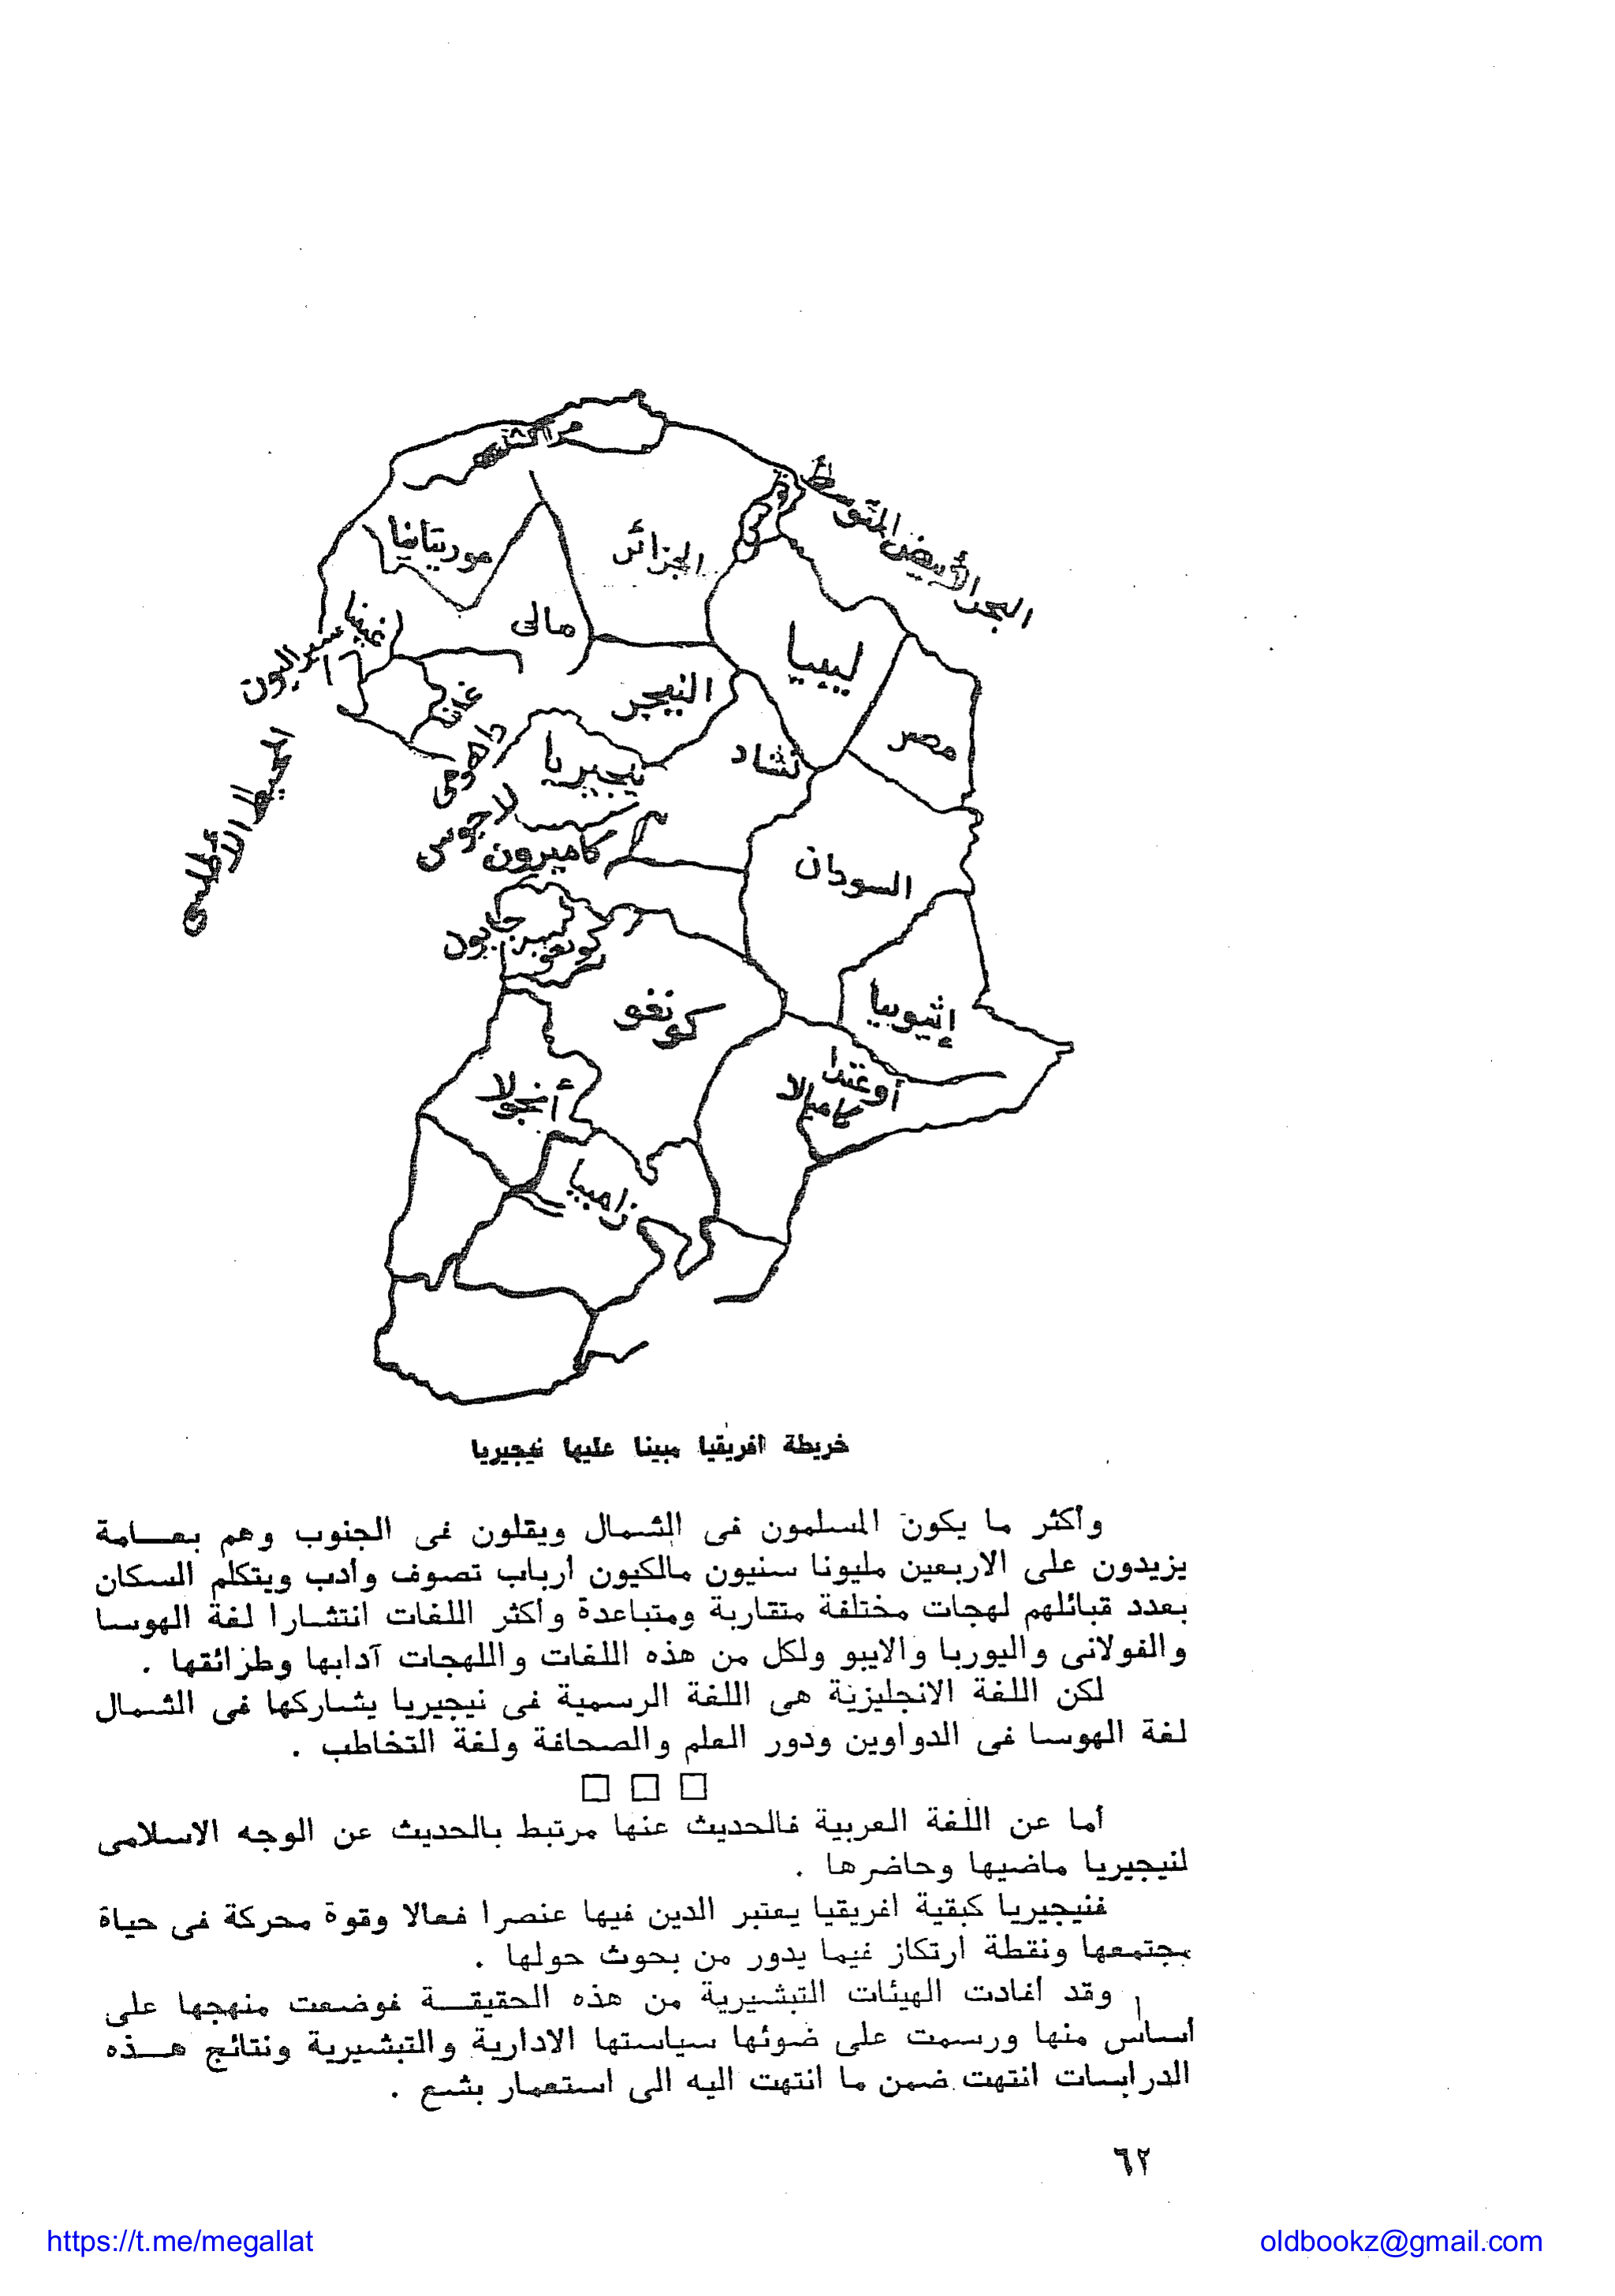 مراكش
البحر الأبيض المتوسط
موريتانيا
الجزائر
مالى
غينيا
سيراليون
ليبيا
النيجر
غانا
مصر
تشاد
داهومى
نيجيريا
المحيط الأطلسى
لاجوس
كاميرون
السودان
جابون
كونغو
كونغو
إثيوبيا
أوغندا
كامبالا
أنجولا
زامبيا
خريطة افريقيا مبينا عليها نيجيريا
وأكثر ما يكون المسلمون فى الشمال ويقلون فى الجنوب وهم بعـــامة
يزيدون على الاربعين مليونا سنيون مالكيون أرباب تصوف وأدب ويتكلم السكان
بعدد قبائلهم لهجات مختلفة متقاربة ومتباعدة وأكثر اللغات انتشارا لغة الهوسا
والفولانى واليوربا والايبو ولكل من هذه اللغات واللهجات آدابها وطرائقها .
لكن اللغة الانجليزية هى اللغة الرسمية فى نيجيريا يشاركها فى الشمال
لغة الهوسا فى الدواوين ودور العلم والصحافة ولغة التخاطب .
□ □ □
أما عن اللغة العربية فالحديث عنها مرتبط بالحديث عن الوجه الاسلامى
لنيجيريا ماضيها وحاضرها .
فنيجيريا كبقية افريقيا يعتبر الدين فيها عنصرا فعالا وقوة محركة فى حياة
مجتمعها ونقطة ارتكاز فيما يدور من بحوث حولها .
وقد أفادت الهيئات التبشيرية من هذه الحقيقـــة فوضعت منهجها على
أساس منها ورسمت على ضوئها سياستها الادارية والتبشيرية ونتائج هـــذه
الدراسات انتهت ضمن ما انتهت اليه الى استعمار بشع .
٦٢
https://t.me/megallat
oldbookz@gmail.com